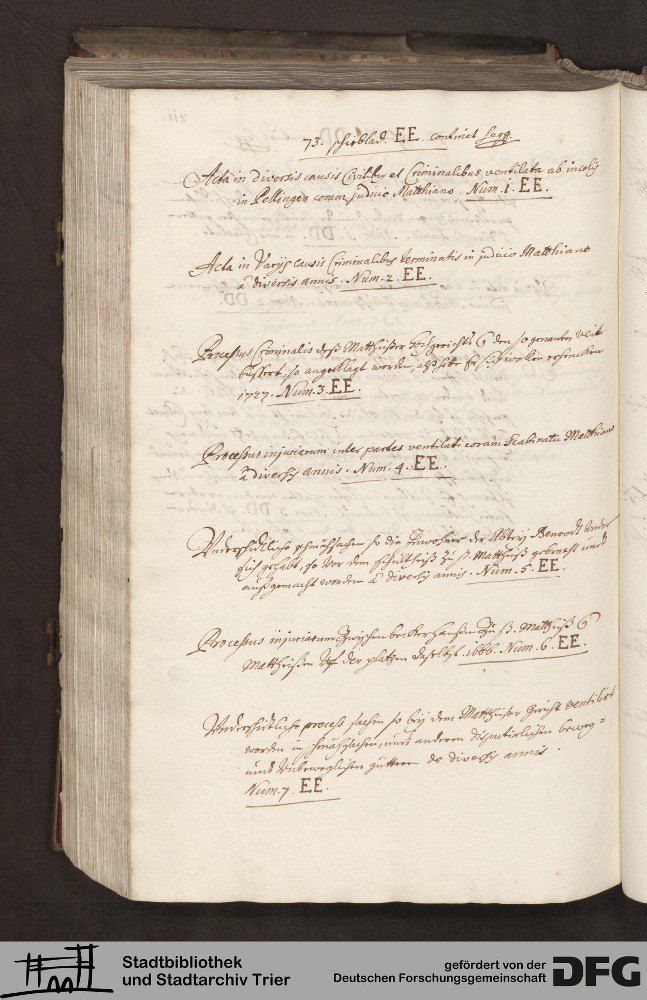 73. schieblad. EE. continet seqq.
Acta in diversis causis Civilibus et Criminalibus ventilata ab incolis
in Pellingen coram judicio Matthiano. Num. 1. EE.
Acta in Varijs causis Criminalibus terminatis in judicio Matthiano
a diversis annis. Num. 2. EE.
Processus Criminalis deß Mattheißer hochgerichts den so genanten Veit
so angeklagt worden, als habe er
1727. Num. 3. EE.
Processus injuriarum inter partes ventilati coram Scabinatu Matthiano
a diversis annis. Num. 4. EE.
Underschidtliche schmähsachen so die Inwohner der Abtey under
sich gehabt, so vor dem schultheiß zu S. Mattheiß gebracht und
außgemacht worden a diversis annis. Num. 5. EE.
Processus injuriarum zwischen becker hanßen zu S. Mattheiß
Mattheißen der platzen daselbst. 1666. Num. 6. EE.
Underschidtliche proceß sachen so bey dem Mattheißer gericht ventilirt
worden in schmähsachen, undt anderen disputirlichen beweg=
undt unbeweglichen gütteren de diversis annis.
Num. 7. EE.
Stadtbibliothek
und Stadtarchiv Trier
gefördert von der
Deutschen Forschungsgemeinschaft
DFG